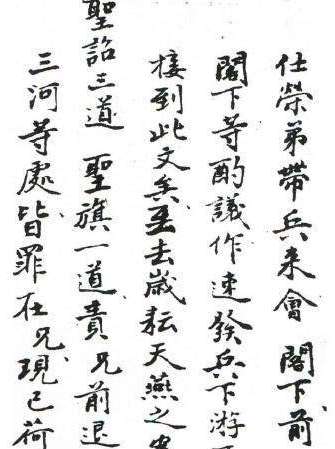 仕榮弟帶兵來會 閣下前
閣下等酌議作速發兵下游
接到此文矣至去歲耘天燕之
聖詔三道 聖旗一道責兄前退
三河等處皆罪在兄現已荷